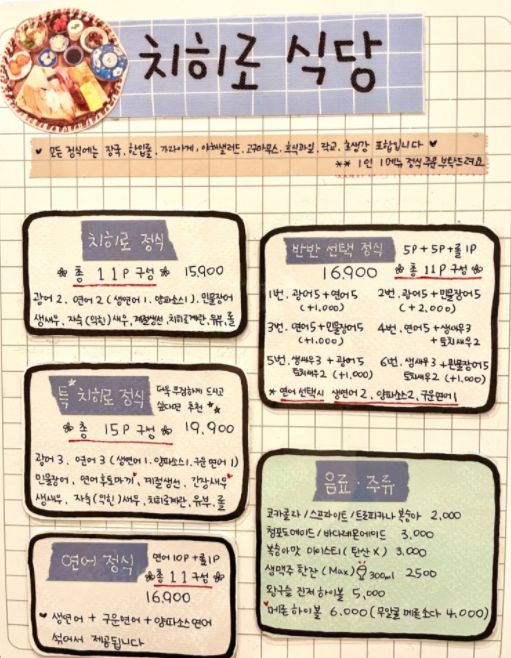 치히로 식당
♥ 모든 정식에는 장국, 한입롤, 가라아게, 야채샐러드, 고구마무스, 후식과일, 락교, 초생강 포함입니다 ♥
** 1인 1메뉴 정식 주문 부탁드려요
치히로 정식
총 11P 구성 15,900
광어 2, 연어 2 (생연어 1, 양파소스 1), 민물장어
생새우, 자숙(익힌)새우, 계절생선, 치히로계란, 유부, 롤
특 치히로 정식 더욱 푸짐하게 드시고
싶다면 추천
총 15P 구성 19,900
광어 3, 연어 3 (생연어 1, 양파소스 1, 구운 연어 1)
민물장어, 연어호토마키, 계절생선, 간장새우
생새우, 자숙(익힌)새우, 치히로계란, 유부, 롤
연어 정식 연어 10P + 롤 1P
총 11 구성
16,900
♥ 생연어 + 구운연어 + 양파소스연어
섞어서 제공됩니다
반반 선택 정식 5P + 5P + 롤 1P
16,900 총 11P 구성
1번. 광어5 + 연어5 2번. 광어5 + 민물장어5
(+1,000) (+2,000)
3번. 연어5 + 민물장어5 4번. 연어5 + 생새우3
(+1,000) + 토치새우2
5번. 생새우3 + 광어5 6번. 생새우3 + 민물장어5
토치새우2 (+1,000) 토치새우2 (+1,000)
* 연어 선택시 생연어 2, 양파소스 2, 구운연어 1
음료·주류
코카콜라 / 스프라이트 / 트로피카나 복숭아 2,000
청포도에이드 / 바다레몬에이드 3,000
복숭아맛 아이스티 (탄산 X) 3,000
생맥주 한잔 (Max) 300ml 2500
왕구슬 진저 하이볼 5,000
♥메론 하이볼 6,000 (무알콜 메론소다 4,000)